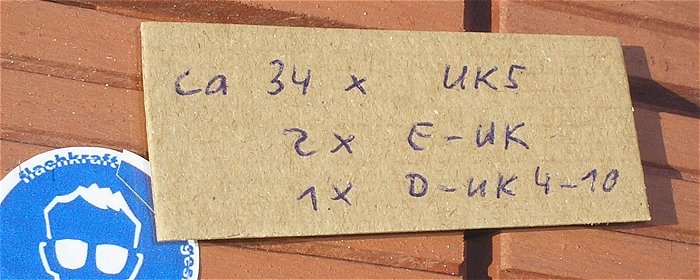 ca 34 x UK5
2x E-UK
1x D-UK 4-10
flachkraft